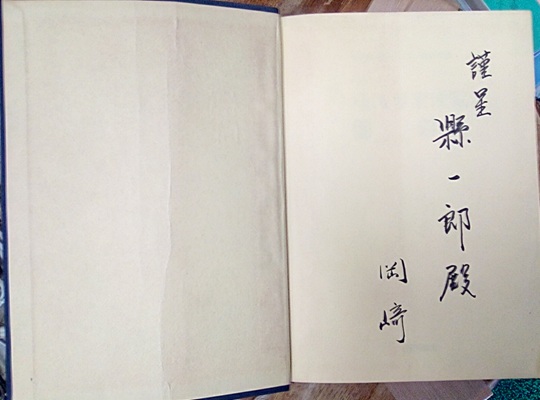 謹呈
縣一郎殿
岡崎